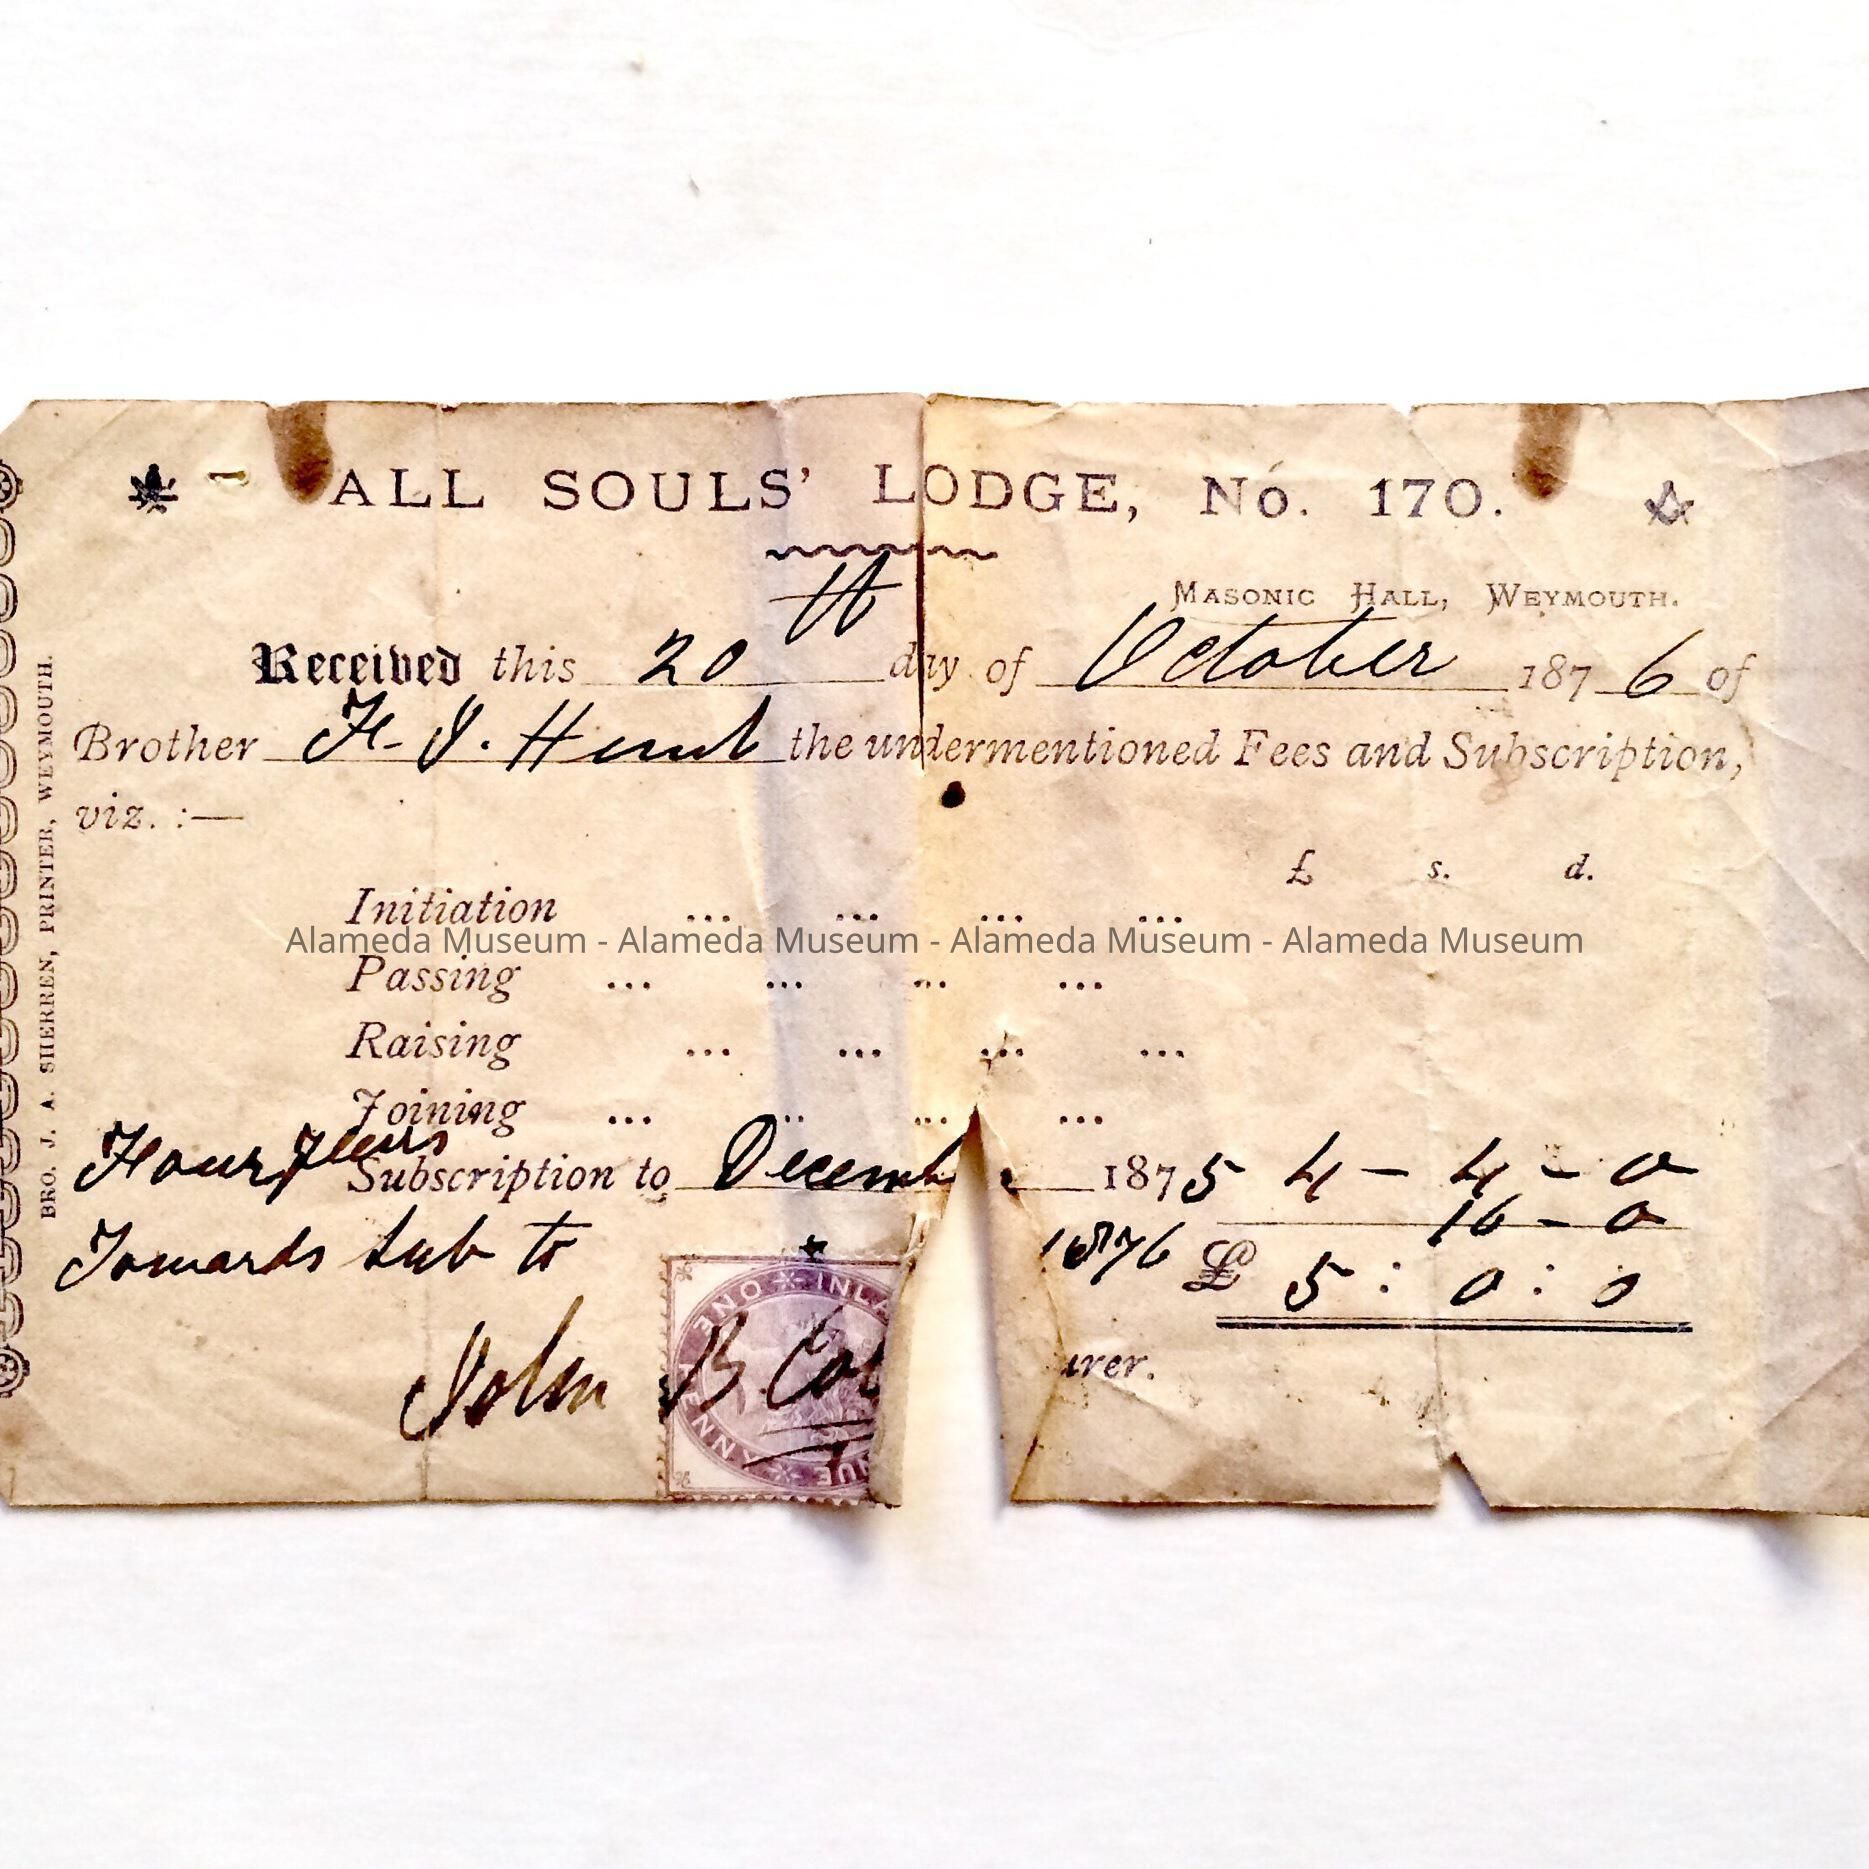 ALL SOULS' LODGE, No. 170.
MASONIC HALL, WEYMOUTH.
Received this 20th day of October 1876 of
Brother F. J. Hunt the undermentioned Fees and Subscription,
viz. :—
£ s. d.
Initiation ... ... ... ...
Alameda Museum - Alameda Museum - Alameda Museum - Alameda Museum
Passing ... ... ... ...
Raising ... ... ... ...
Joining ... ... ... ...
Four years Subscription to Decemb 1875 4 - 4 - 0
Towards sub to 1876 16 - 0
£ 5 : 0 : 0
John B. urer.
ONE INLA
NUE PENN
BRO. J. A. SHERREN, PRINTER, WEYMOUTH.